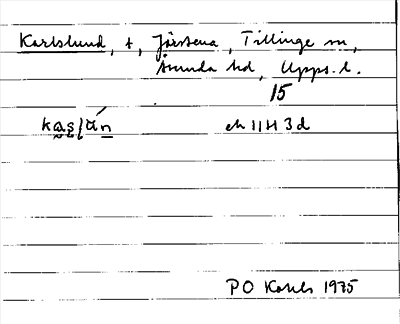 Karlslund, t, Järstena, Tillinge sn,
Åsunda hd, Upps. l.
15
ek 11H 3d
P O Kåhls 1975